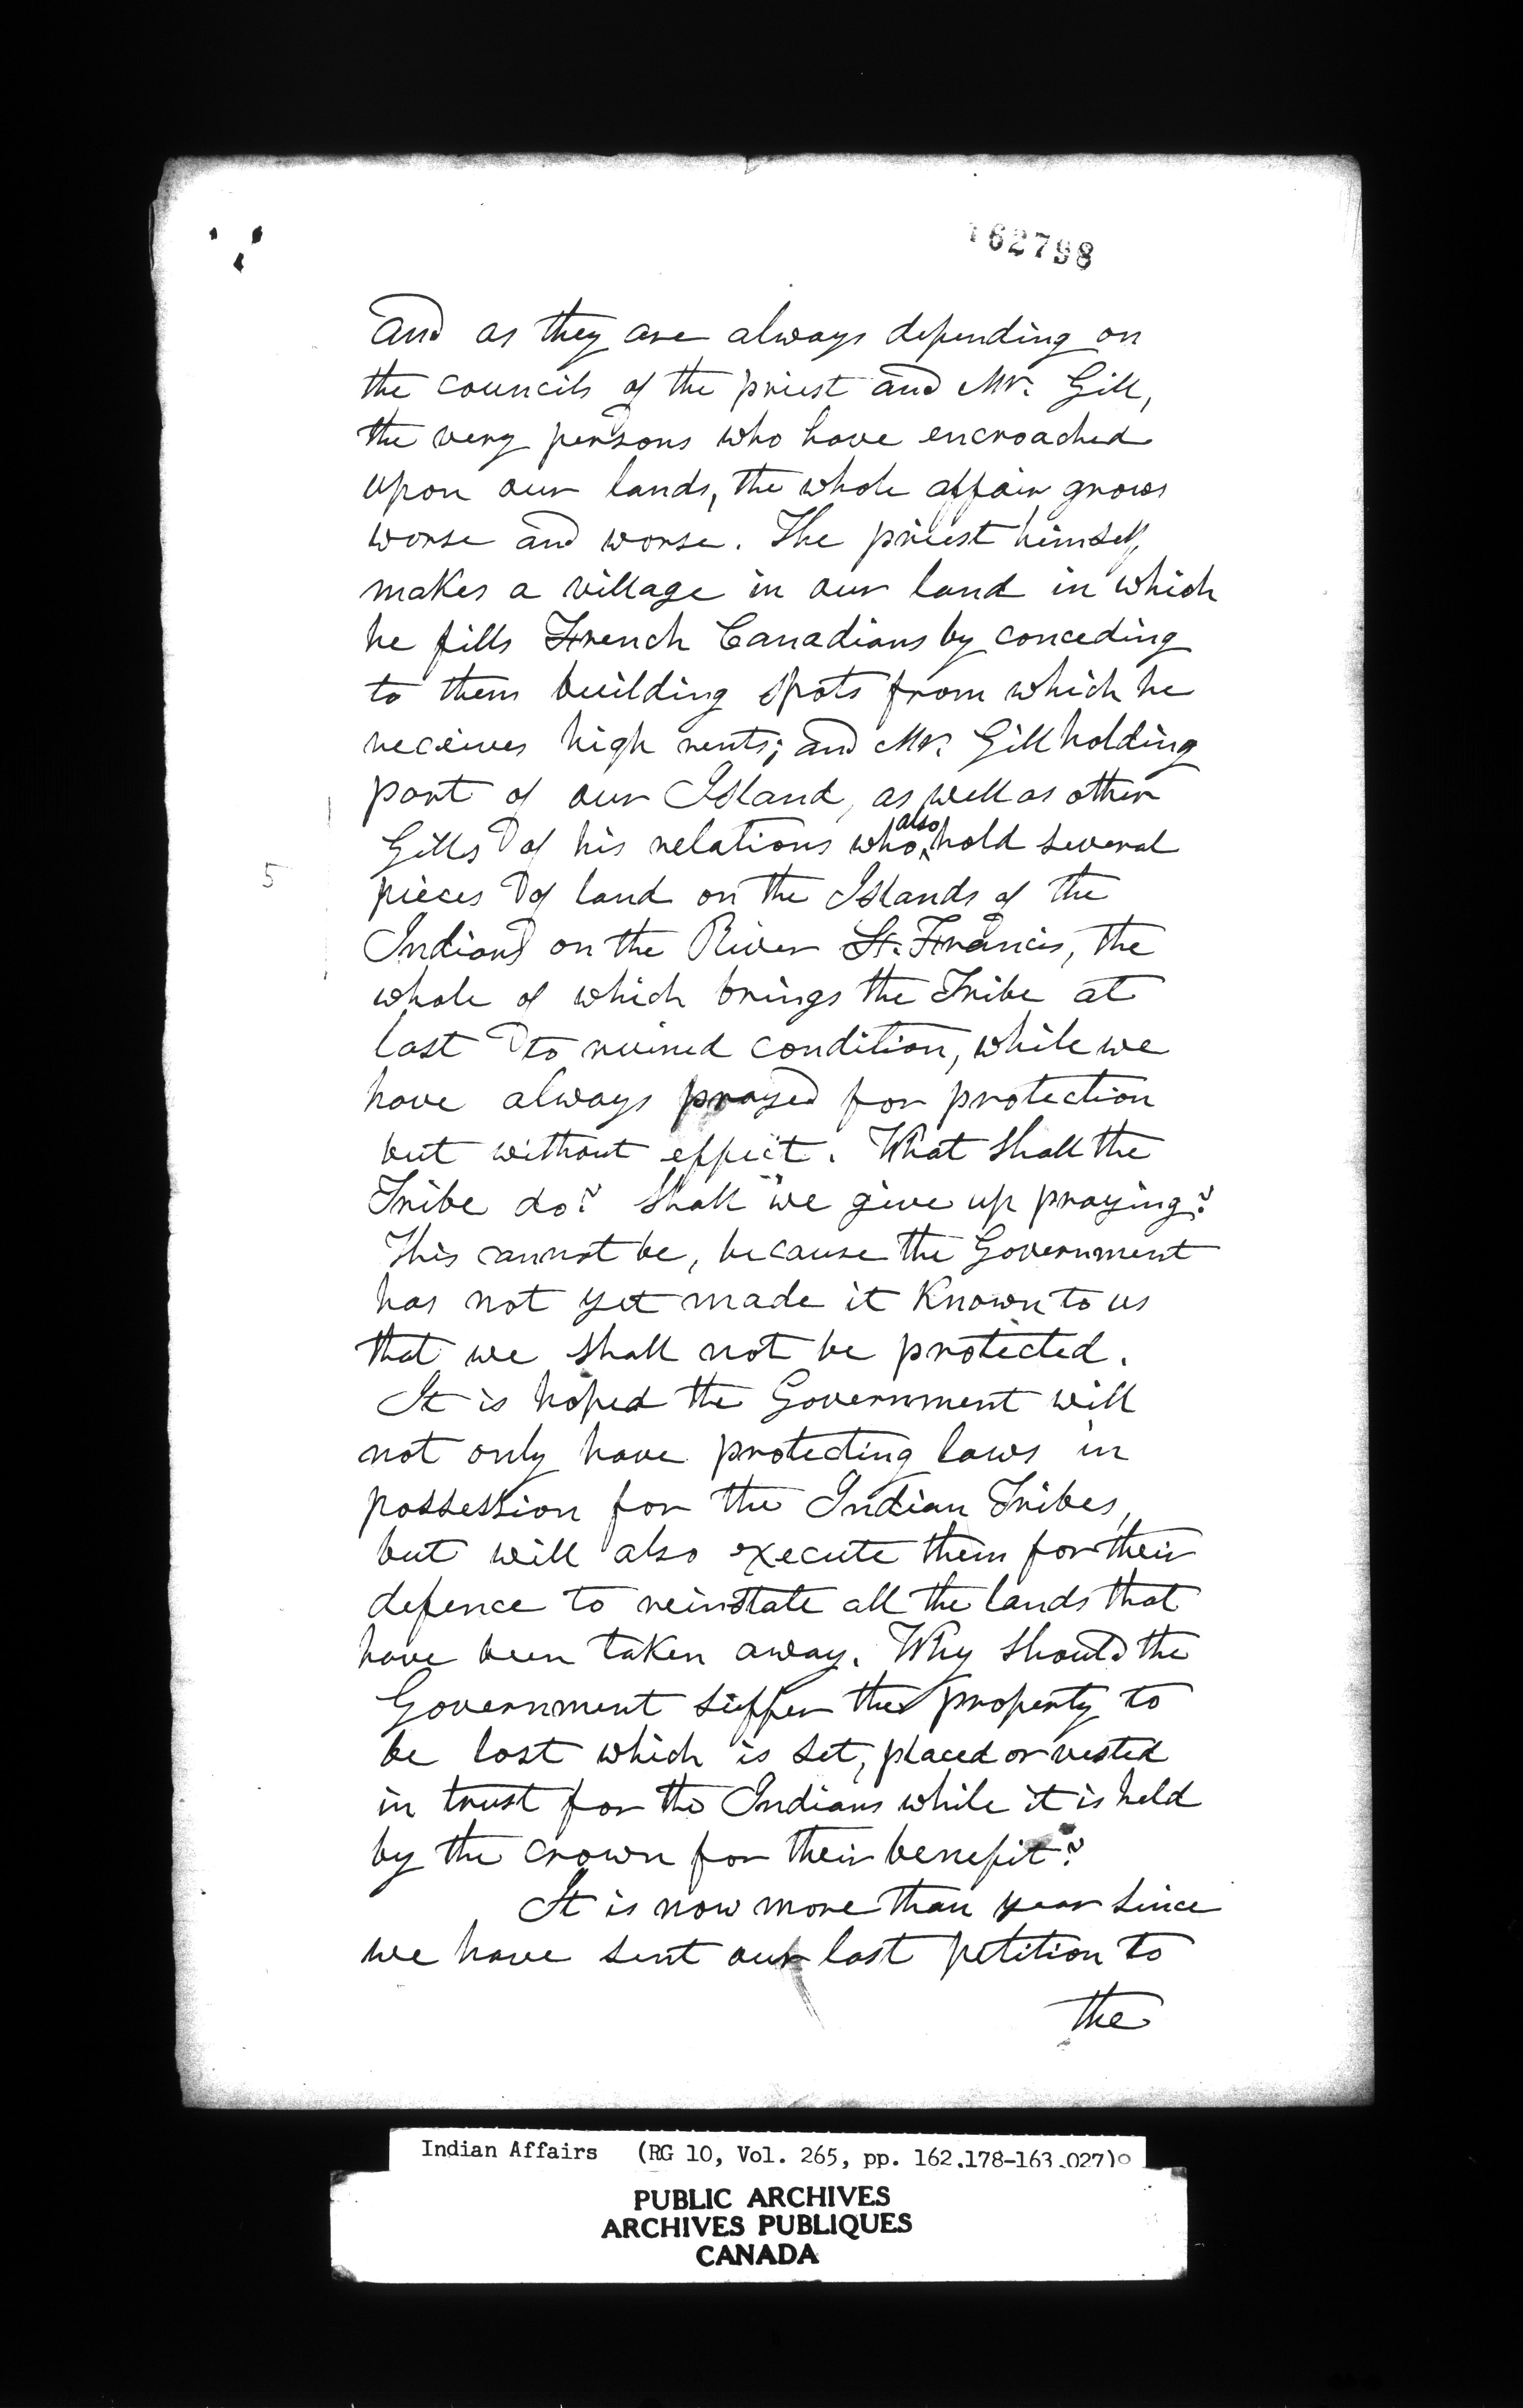 162798
and as they are always depending on
the councils of the priest and Mr. Gill,
the very persons who have encroached
upon our lands, the whole affair grows
worse and worse. The priest himself
makes a village in our land in which
he fills French Canadians by conceding
to them building spots from which he
receives high rents; and Mr. Gill holding
part of our Island, as well as other
Gills of his relations who also hold several
5
pieces of land on the Islands of the
Indians on the River St. Francis, the
whole of which brings the Tribe at
last to ruined condition, while we
have always prayed for protection
but without effect. What shall the
Tribe do? Shall we give up praying?
This cannot be, because the Government
has not yet made it known to us
that we shall not be protected.
It is hoped the Government will
not only have protecting laws in
possession for the Indian Tribes,
but will also execute them for their
defence to reinstate all the lands that
have been taken away. Why should the
Government suffer the property to
be lost which is set, placed or vested
in trust for the Indians while it is held
by the crown for their benefit?
It is now more than year since
we have sent our last petition to
the
Indian Affairs (RG 10, Vol. 265, pp. 162,178-163,027)
PUBLIC ARCHIVES
ARCHIVES PUBLIQUES
CANADA